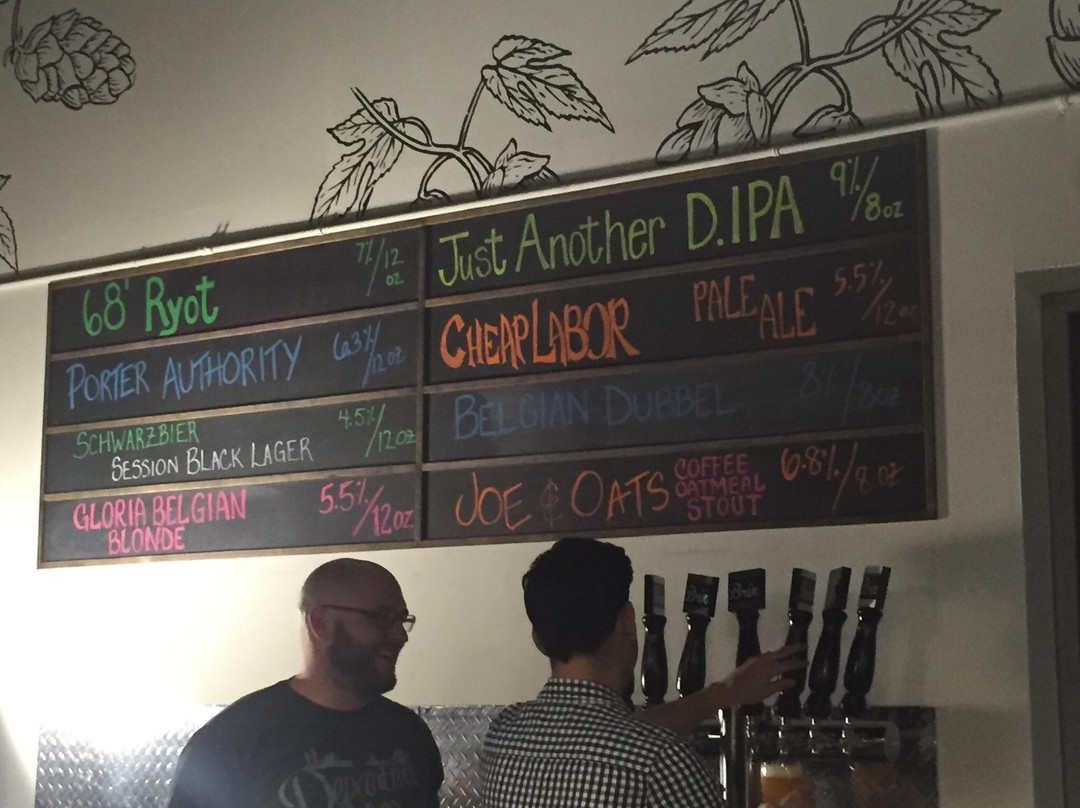 68' Ryot 7%/12 oz
PORTER AUTHORITY 6.3%/12oz
SCHWARZBIER 4.5%/12oz
SESSION BLACK LAGER
GLORIA BELGIAN 5.5%/12oz
BLONDE
Just Another D.IPA 9%/8oz
CHEAP LABOR PALE ALE 5.5%/12oz
BELGIAN DUBBEL 8%/8oz
JOE & OATS COFFEE OATMEAL STOUT 6.8%/8 oz
Departed